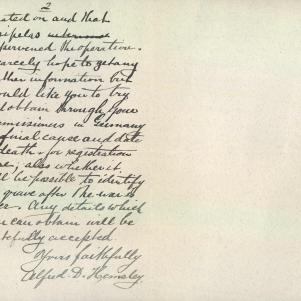 2
ated on and that
sipelas inter
pervened the operation.
arcely hope to get any
ther information but
ould like you to try
d obtain through your
mmissioners in Germany
final cause and date
death, for registration
e; also whether it
ll be possible to identify
grave after the war is
er. Any details which
u can obtain will be
tefully accepted.
Yours faithfully
Alfred D. Hemsley.